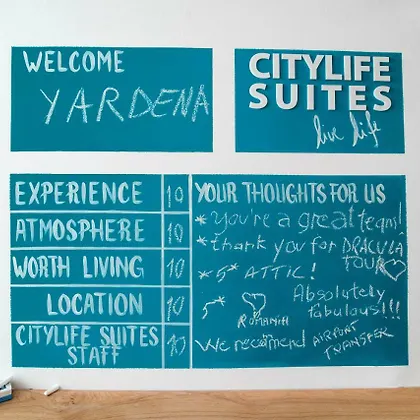 WELCOME
YARDENA
CITYLIFE
SUITES
live life
EXPERIENCE 10
ATMOSPHERE 10
WORTH LIVING 10
LOCATION 10
CITYLIFE SUITES
STAFF 10
YOUR THOUGHTS FOR US
* you're a great team!
* thank you for DRACULA
TOUR
* 5* ATTIC!
Absolutely
fabulous!!!
5*
ROMANIA
We recomend AIRPORT
TRANSFER